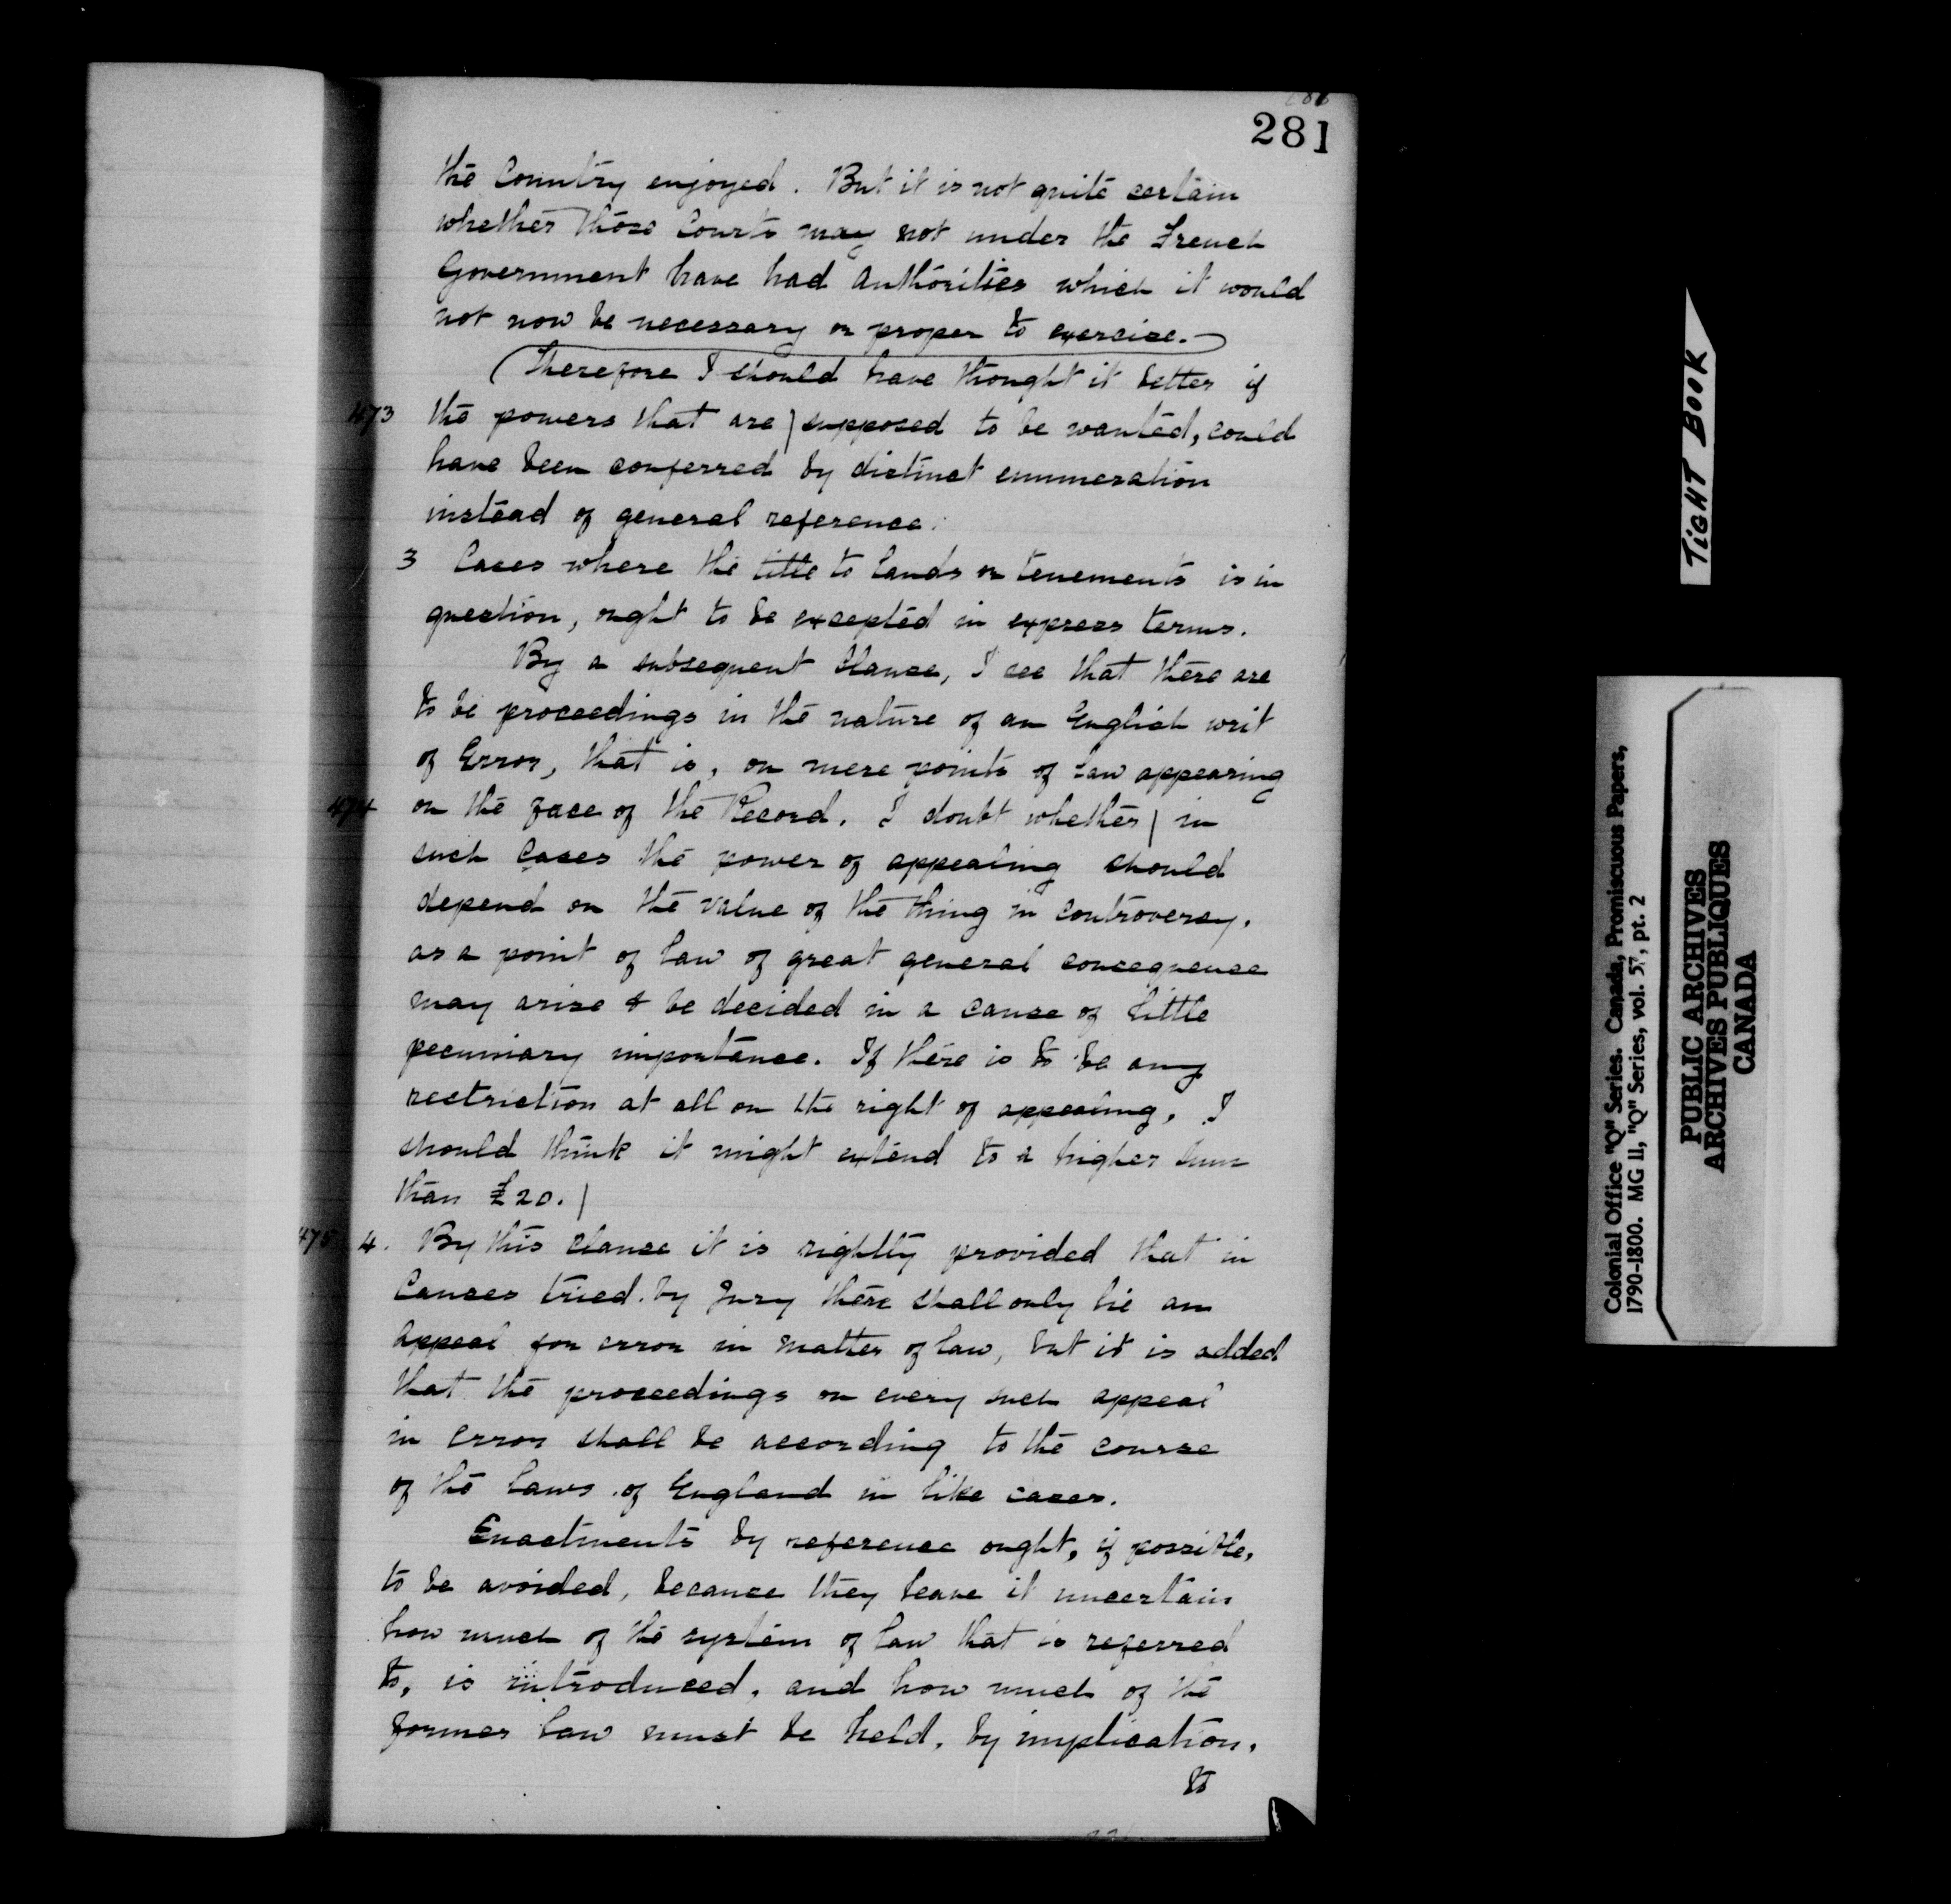 281
the Country enjoyed. But it is not quite certain
whether those Courts may not under the French
Government have had authorities which it would
not now be necessary or proper to exercise.
(Therefore I should have thought it better if
473 the powers that are | supposed to be wanted, could
have been conferred by distinct enumeration
instead of general reference.
3 Cases where the title to lands or tenements is in
question, ought to be excepted in express terms.
By a subsequent Clause, I see that there are
to be proceedings in the nature of an English writ
of Error, that is, on mere points of Law appearing
474 on the face of the Record. I doubt whether | in
such Cases the power of appealing should
depend on the value of the thing in controversy,
as a point of law of great general consequence
may arise & be decided in a cause of little
pecuniary importance. If there is to be any
restriction at all on the right of appealing, I
should think it might extend to a higher sum
than £20. |
475 4. By this clause it is rightly provided that in
Causes tried by Jury there shall only lie an
appeal for error in matter of law, but it is added
that the proceedings on every such appeal
in error shall be according to the course
of the laws of England in like cases.
Enactments by reference ought, if possible,
to be avoided, because they leave it uncertain
how much of the system of law that is referred
to, is introduced, and how much of the
former law must be held, by implication,
to
TIGHT BOOK
Colonial Office "Q" Series. Canada, Promiscuous Papers,
1790-1800. MG 11, "Q" Series, vol. 57, pt. 2
PUBLIC ARCHIVES
ARCHIVES PUBLIQUES
CANADA